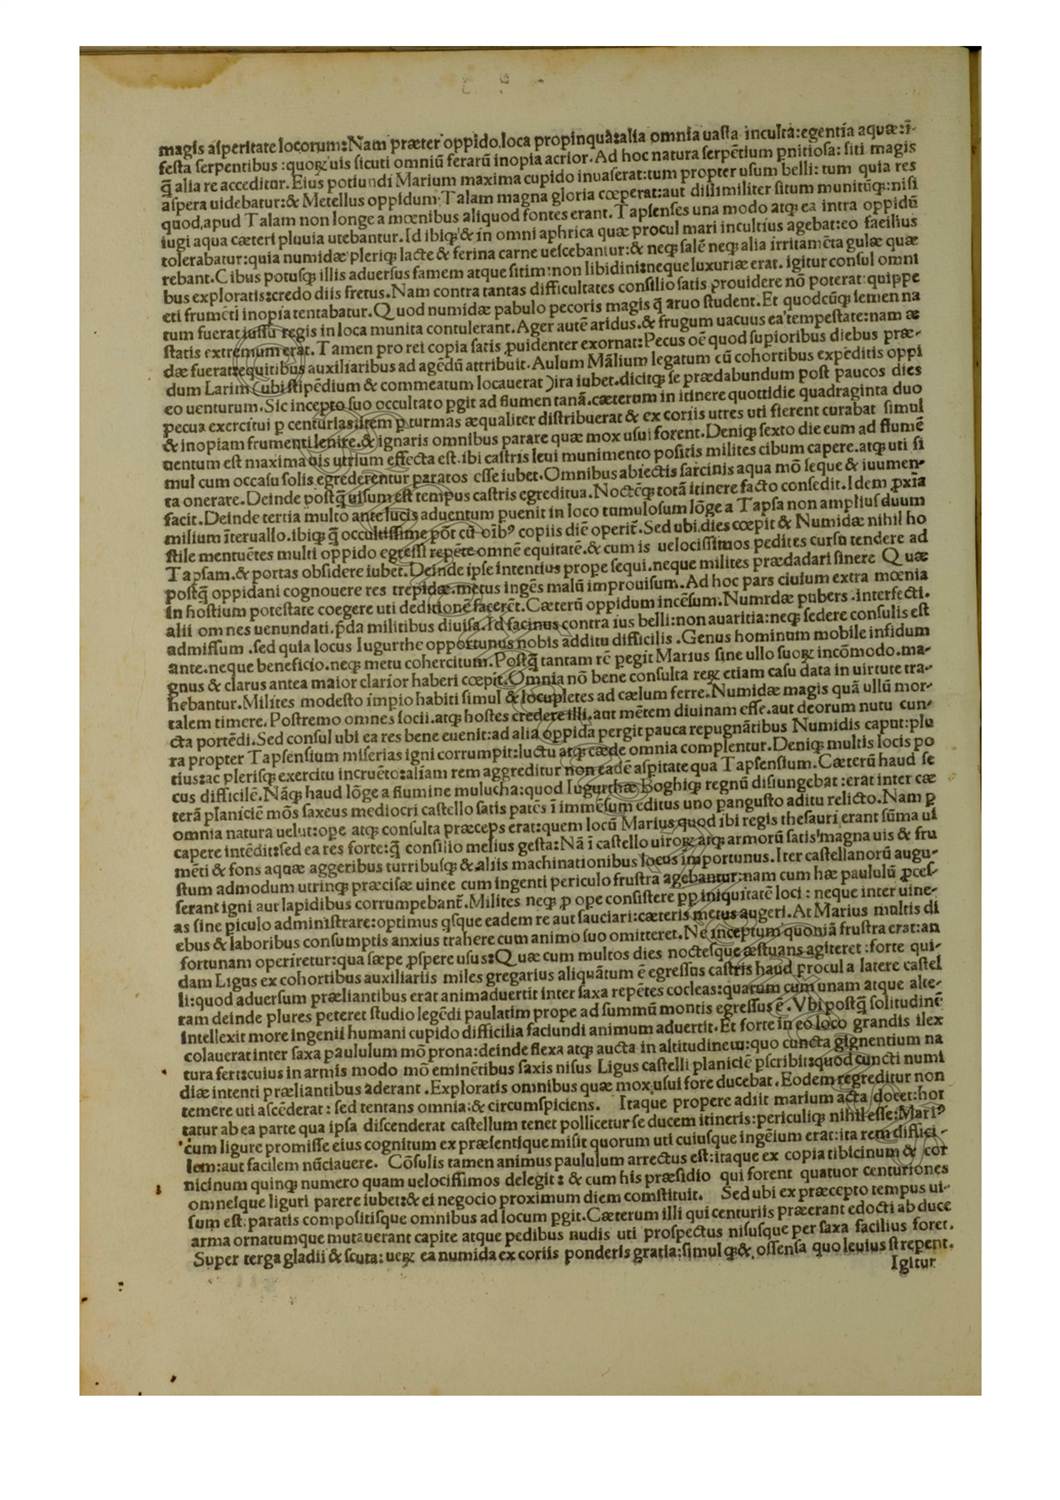 magis asperitate locorum:Nam præter oppido,loca propinqua:alia omnia uasta inculta:egentia aquæ:ī-
festa serpentibus :quoꝝ uis sicuti omniū ferarū inopia acrior. Ad hoc natura serpētium ꝑnitiosa: siti magis
q̄ alia re acceditur. Eius potiundi Marium maxima cupido inuaserat:tum propter usum belli: tum quia res
aspera uidebatur:& Metellus oppidum Talam magna gloria cœperat:aut dissimiliter situm munitūq;:nisi
quod,apud Talam non longe a mœnibus aliquod fontes erant. Tapsenses una modo atq; ea intra oppidū
iugi aqua cæteri pluuia utebantur. Id ibiq; & in omni aphrica quæ procul mari incultius agebat:eo facilius
tolerabatur:quia numidæ pleriq; lacte & ferina carne uescebantur:& neq; salē neq; alia irritamēta gulæ quæ
rebant. Cibus potusq; illis aduersus famem atque sitim:non libidini:neque luxuriæ erat. igitur consul omni
bus exploratis:credo diis fretus. Nam contra tantas difficultates consilio satis prouidere nō poterat:quippe
eti frumēti inopia tentabatur. Quod numidæ pabulo pecoris magis q̄ aruo student. Et quodcūq; semen na
tum fuerat iussu regis in loca munita contulerant. Ager autē aridus.& frugum uacuus ea tempestate:nam æ
statis extremum erat. Tamen pro rei copia satis ꝓuidenter exornat:Pecus oē quod supioribus diebus præ-
dæ fuerat:equitibus auxiliaribus ad agēdū attribuit. Aulum Mālium legatum cū cohortibus expeditis oppi
dum Larim (ubi stipēdium & commeatum locauerat) ira iubet. dicitq; se prædabundum post paucos dies
eo uenturum. Sic incepto suo occultato pgit ad flumen tanā. cæterum in itinere quottidie quadraginta duo
pecua exercitui p centurias:item p turmas æqualiter distribuerat & ex coriis utres uti fierent curabat simul
& inopiam frumenti lenire.& ignaris omnibus parare quæ mox usui forent. Deniq; sexto die cum ad flumē
uentum est maxima uis utrium effecta est. ibi castris leui munimento positis milites cibum capere. atq; uti si
mul cum occasu solis egrederentur paratos esse iubet. Omnibus abiectis sarcinis aqua mō seque & iuumen-
ta onerare. Deinde postq̄ uisum est tempus castris egreditua. Noctēq; totā itinere facto consedit. Idem ꝓxia
facit. Deinde tertia multo ante lucis aduentum puenit in loco tumulosum lōge a Tapsa non amplius duum
milium īteruallo. ibiq; q̄ occultissime pōt cū oībꝰ copiis diē operit̄. Sed ubi dies cœpit & Numidæ nihil ho
stile mentuētes multi oppido egressi repēte omnē equitatē.& cum is uelocissimos pedites cursū tendere ad
Tapsam.& portas obsidere iubet. Deinde ipse intentius prope sequi. neque milites prædadari sinere Quæ
postq̄ oppidani cognouere res trepidæ.metus ingēs malū improuisum. Ad hoc pars ciuium extra mœnia
in hostium potestate coegere uti deditionē facerēt. Cæterū oppidum incēsum. Numrdæ pubers .interfecti.
alii omnes uenundati. p̄da militibus diuisa. Id facinus contra ius belli: non auaritia: neq; sedere consulis est
admissum .sed quia locus Iugurthe opportunus nobis additu difficilis .Genus hominum mobile infidum
ante. neque beneficio. neq; metu cohercitum. Postq̄ tantam rē pegit Marius sine ullo suoꝝ incōmodo. ma-
gnus & clarus antea maior clarior haberi cœpit. Omnia nō bene consulta reꝝ etiam casu data in uirtute tra-
hebantur. Milites modesto impio habiti simul & locupletes ad cælum ferre. Numidæ magis quā ullū mor-
talem timere. Postremo omnes socii. atq; hostes credere illi. aut mētem diuinam esse. aut deorum nutu cun-
cta portēdi. Sed consul ubi ea res bene euenit:ad alia oppida pergit pauca repugnātibus Numidis caput:plu
ra propter Tapsensium miserias igni corrumpit:luctu atq; cæde omnia complentur. Deniq; multis locis po
tius:ac plerisq; exercitu incruēto:aliam rem aggreditur non eadē aspitate qua Tapsensium. Cæterū haud se
cus difficilē. Nāq; haud lōge a flumine mulucha:quod Iugurthæ Boghiq; regnū disiungebat :erat inter cæ
terā planiciē mōs saxeus mediocri castello satis patēs ī immēsum editus uno pangusto aditu relicto. Nam p
omnia natura uelut:ope atq; consulta præceps erat:quem locū Marius quod ibi regis thesauri erant sūma ui
capere intēdit:sed ea res forte:q̄ consilio melius gesta: Nā ī castello uiroꝝ atq; armorū satis magna uis & fru
mēti & fons aquæ aggeribus turribusq; & aliis machinationibus locus importunus. Iter castellanorū augu-
stum admodum utrinq; præcisæ uinee cum ingenti periculo frustrā agebantur:nam cum hæ paululū ꝓces-
serant igni aut lapidibus corrumpebant̄. Milites neq; p ope consistere pp iniquitatē loci : neque inter uine-
as sine piculo administrare:optimus qsque eadem re aut sauciari:cæteris metus augeri. At Marius multis di
ebus & laboribus consumptis anxius trahere cum animo suo omitteret. Ne inceptum quoniā frustra erat:an
fortunam operiretur:qua sæpe ꝓspere usus:Quæ cum multos dies noctesque æstuans agiteret :forte qui-
dam Ligus ex cohortibus auxiliariis miles gregarius aliquātum ē egressus castris haud procul a latere castel
li:quod aduersum præliantibus erat animaduertit inter saxa repētes cocleas:quarum cum unam atque alte-
ram deinde plures peteret studio legēdi paulatim prope ad summū montis egressus ē. Vbi postq̄ solitudinē
intellexit more ingenii humani cupido difficilia faciundi animum aduertit. Et forte in eo loco grandis ilex
colauerat inter saxa paululum mō prona:deinde flexa atq; aucta in altitudinem:quo cuncta gignentium na
tura fert:cuius in armis modo mō eminētibus saxis nisus Ligus castelli planiciē pscribit:quod cuncti numi
diæ intenti præliantibus aderant .Exploratis omnibus quæ mox usui fore ducebat. Eodem regreditur non
temere uti ascēderat: sed tentans omnia:& circumspiciens. Itaque propere adiit marium acta docet:hor
tatur ab ea parte qua ipsa discenderat castellum tenet pollicetur se ducem itineris:periculiq; nihil esse:Mariꝰ
cum ligure promisse eius cognitum ex præsentique misit quorum uti cuiusque ingēium erat:ita rem diffici-
lem:aut facilem nūciauere. Cōsulis tamen animus paululum arrectus est:itaque ex copia tibicinum & cor
nicinum quinq; numero quam uelocissimos delegit: & cum his præsidio qui forent quatuor centuriones
omnesque liguri parere iubet:& ei negocio proximum diem comstituit. Sed ubi ex præcepto tempus ui-
sum est. paratis compositisque omnibus ad locum pgit. Cæterum illi qui centuriis præerant edocti ab duce
arma ornatumque mutauerant capite atque pedibus nudis uti prospectus nisusque per saxa facilius foret.
Super terga gladii & scuta: ueꝝ ea numida ex coriis ponderis gratia:simul q;&. offensa quo leuius strepent.
Igitur